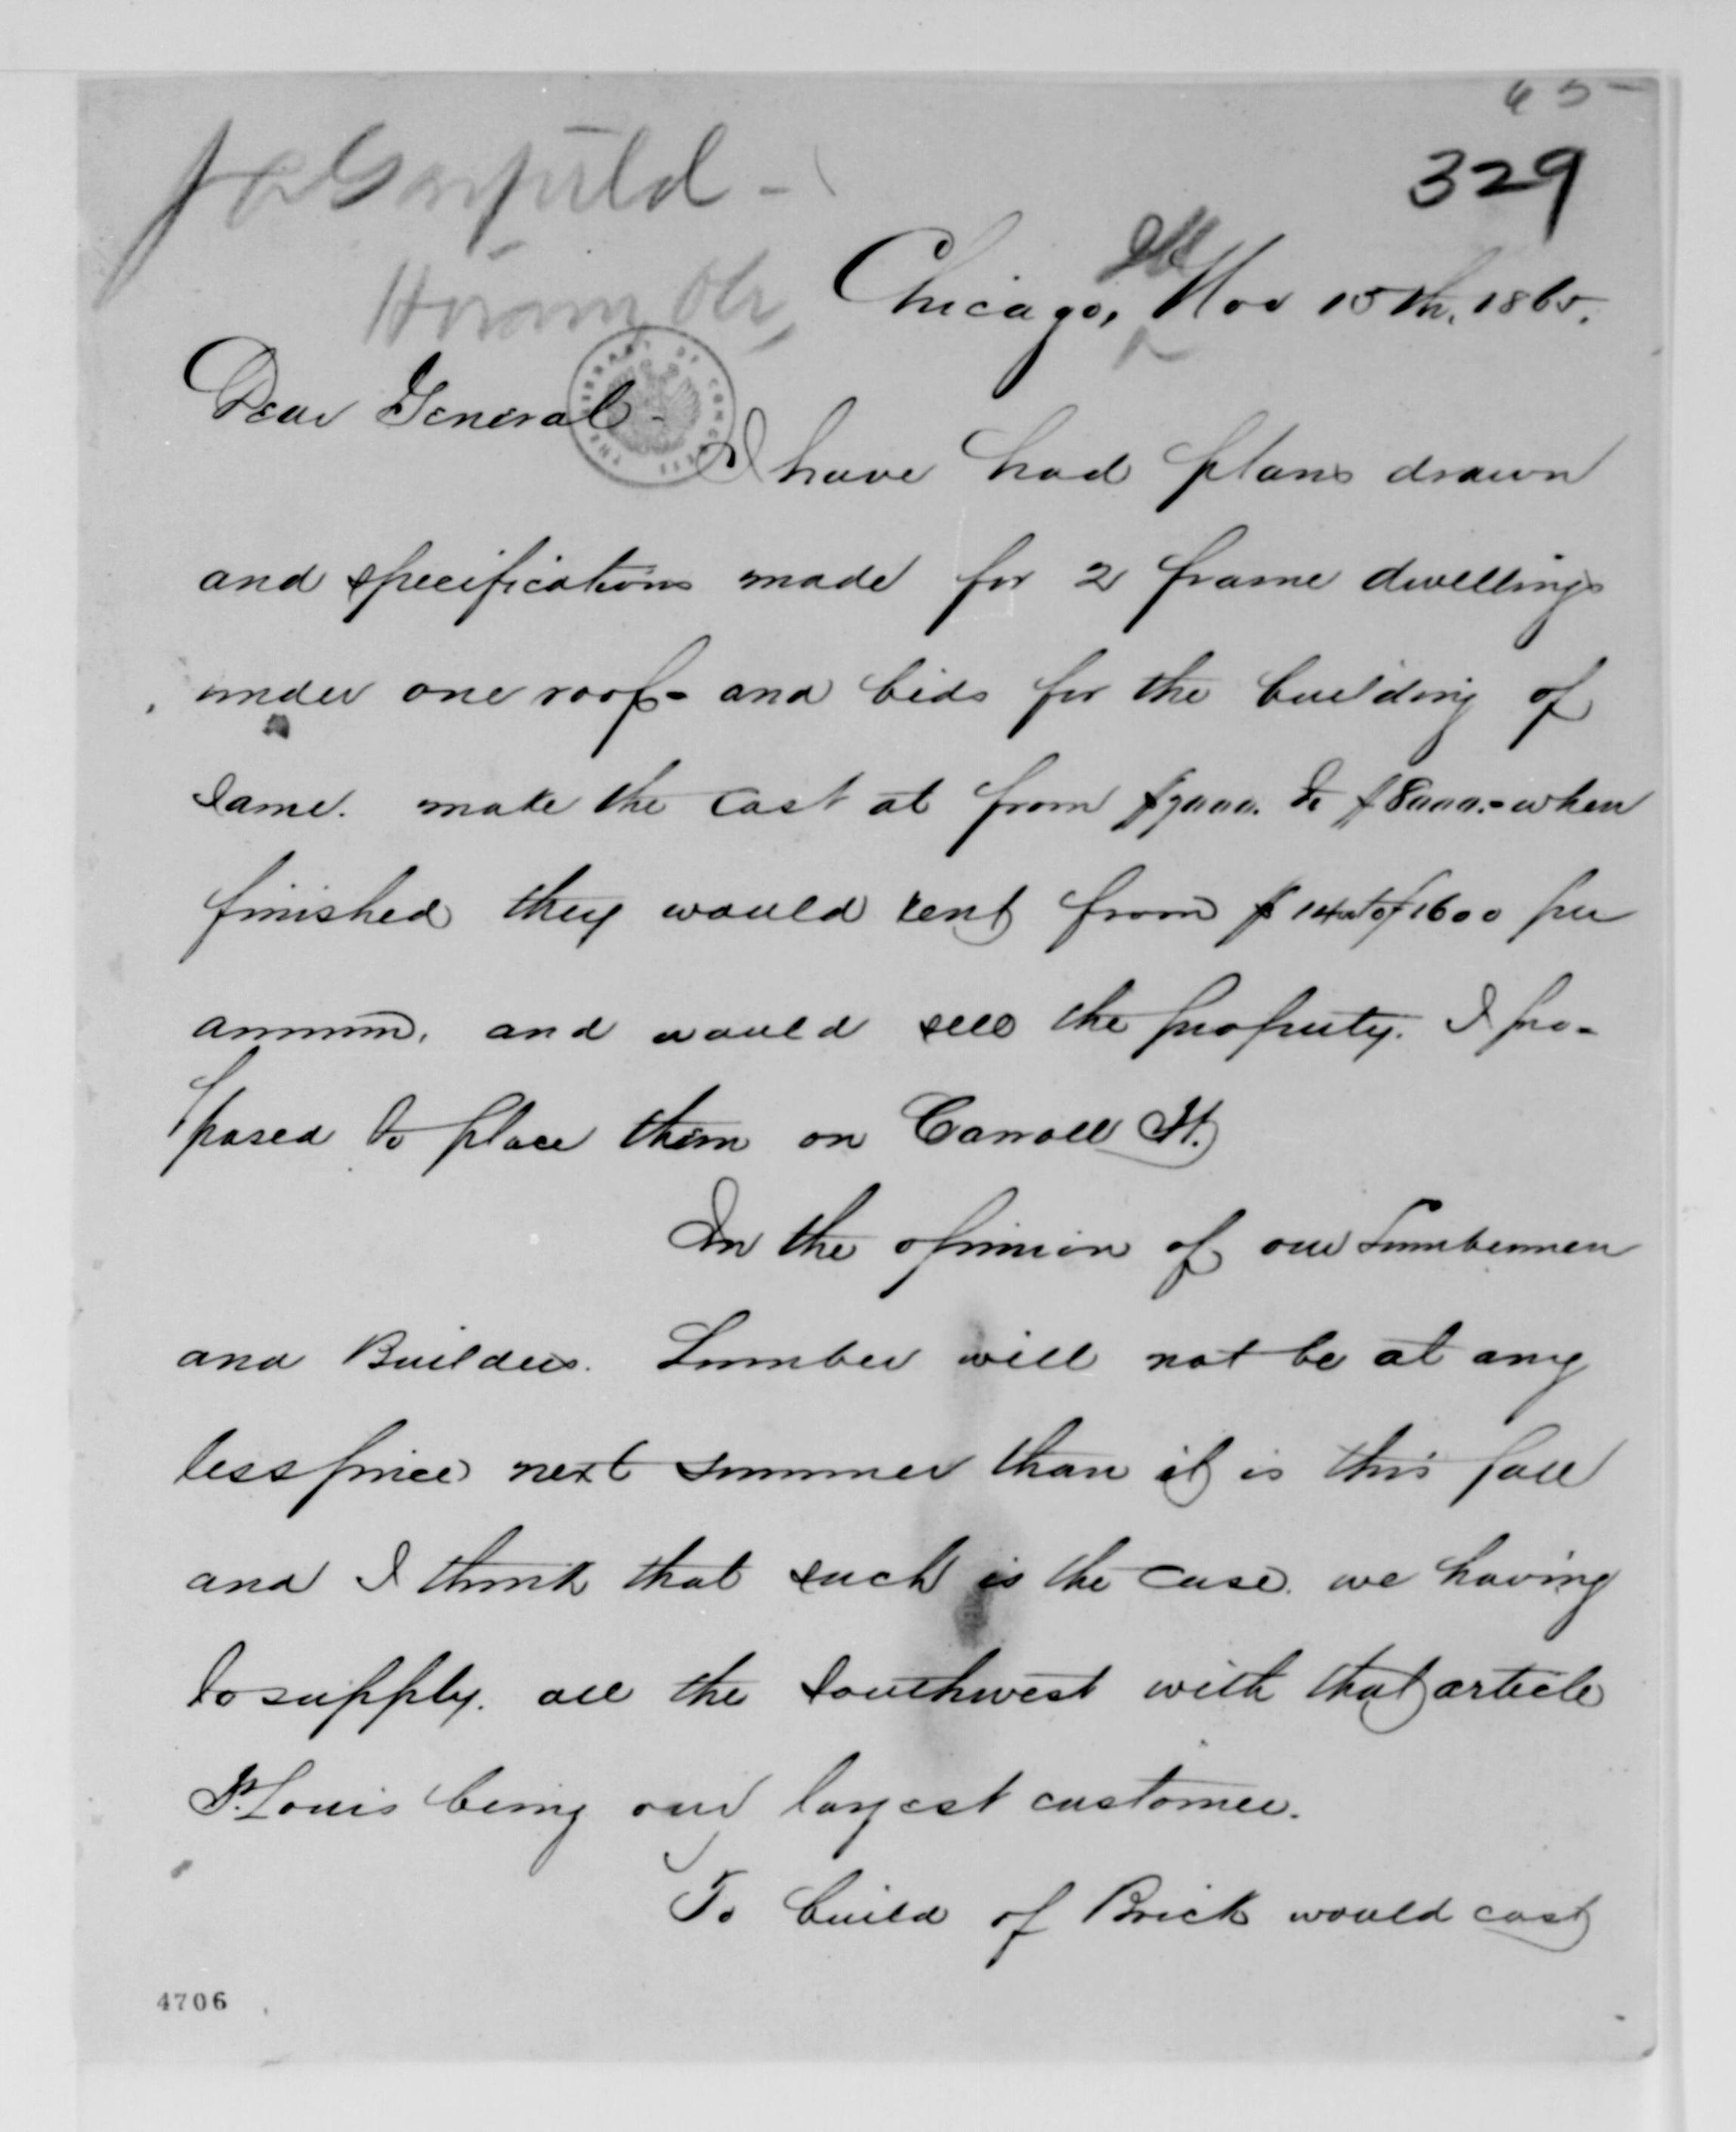 65
329
J A Garfield -
Hiram Oh,
Chicago, Ill Nov 15th, 1865.
Dear General -
THE LIBRARY OF CONGRESS
I have had plans drawn
and specifications made for 2 frame dwellings
under one roof - and bids for the building of
same. make the cost at from $7000. to $8000. - when
finished they would rent from $1400 to $1600 per
annum, and would sell the property. I pro-
posed to place them on Carroll St.
In the opinion of our Lumbermen
and Builders. Lumber will not be at any
less price next summer than it is this fall
and I think that such is the case. we having
to supply. all the Southwest with that article
St. Louis being our largest customer.
To build of Brick would cost
4706